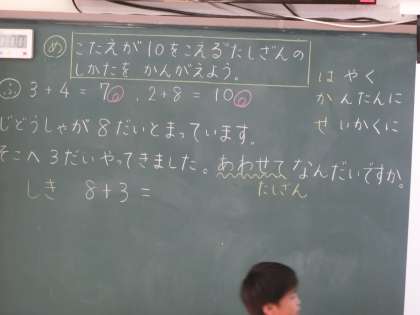 め こたえが10をこえるたしざんの
しかたを かんがえよう。
はやく
かんたんに
せいかくに
ふ 3+4=7 , 2+8=10
じどうしゃが8だいとまっています。
そこへ3だいやってきました。あわせてなんだいですか。
たしざん
しき 8+3=